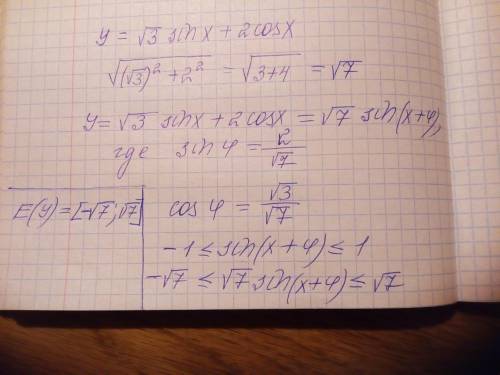 y = √3 sin x + 2 cos x
√((√3)² + 2²) = √(3+4) = √7
y = √3 sin x + 2 cos x = √7 sin(x+φ),
где sin φ = 2/√7
cos φ = √3/√7
-1 ≤ sin(x+φ) ≤ 1
-√7 ≤ √7 sin(x+φ) ≤ √7
E(y) = [-√7; √7]